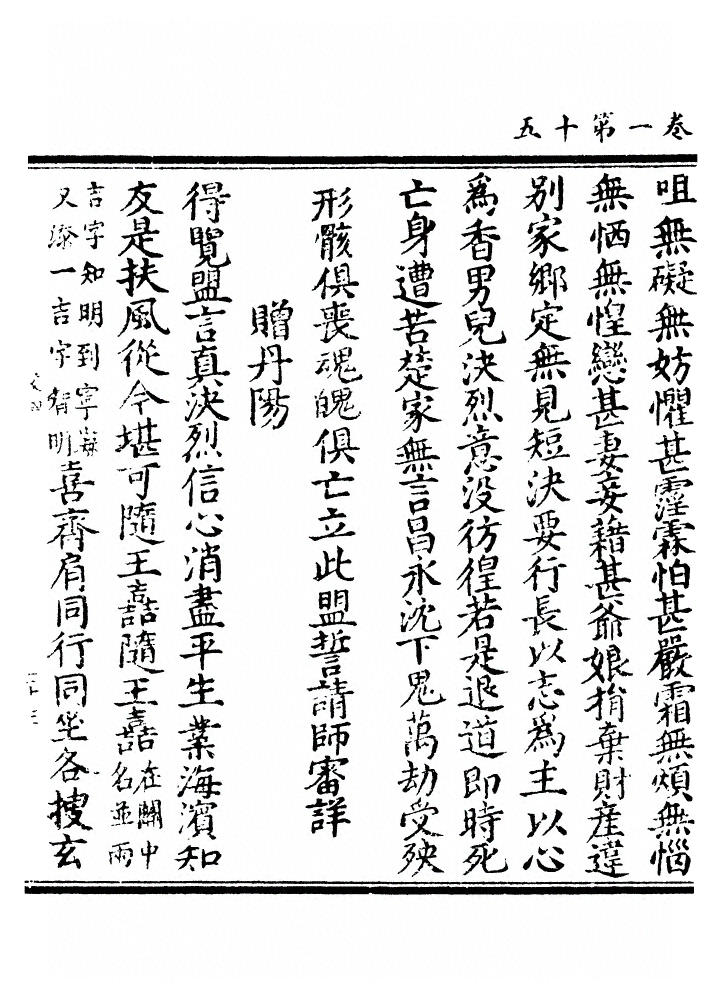 五十第一卷
咀無礙無妨懼甚霪霖怕甚嚴霜無煩無惱
無恓無惶戀甚妻妾藉甚爺娘捐棄財產違
別家鄉定無見短決要行長以志為主以心
為香男兒決烈意沒彷徨若是退道即時死
亡身遭苦楚家無言昌永沈下鬼萬劫受殃
形骸俱喪魂魄俱亡立此盟誓請師審詳
贈丹陽
得覽盟言真決烈信心消盡平生業海濱知
友是扶風從今堪可隨王嚞隨王嚞在關中名並兩
吉字知明到寧海又添一吉字智明喜齊肩同行同坐各搜玄